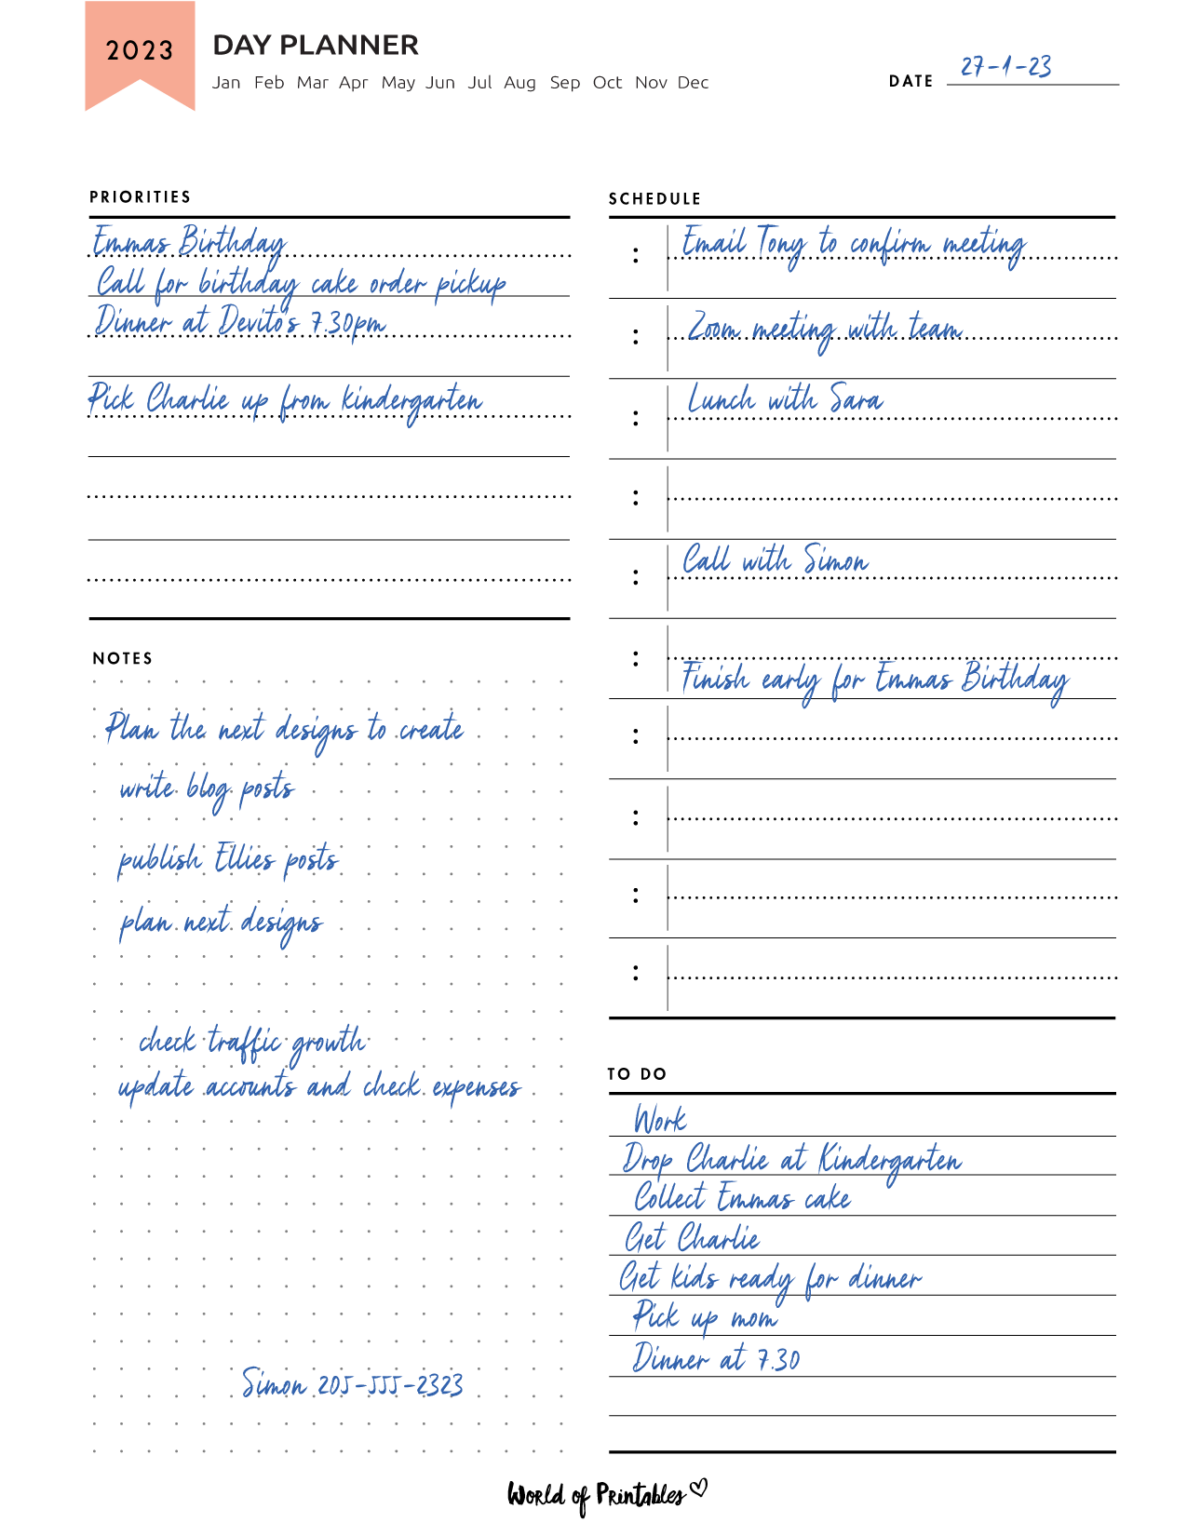 2023
DAY PLANNER
Jan Feb Mar Apr May Jun Jul Aug Sep Oct Nov Dec
DATE 27-1-23
PRIORITIES
Emmas Birthday
Call for birthday cake order pickup
Dinner at Devito's 7.30pm
Pick Charlie up from kindergarten
SCHEDULE
: Email Tony to confirm meeting
: Zoom meeting with team
: Lunch with Sara
:
: Call with Simon
: Finish early for Emmas Birthday
:
:
:
:
NOTES
Plan the next designs to create
write blog posts
publish Ellies posts
plan next designs
check traffic growth
update accounts and check expenses
Simon 205-555-2323
TO DO
Work
Drop Charlie at Kindergarten
Collect Emmas cake
Get Charlie
Get kids ready for dinner
Pick up mom
Dinner at 7.30
World of Printables